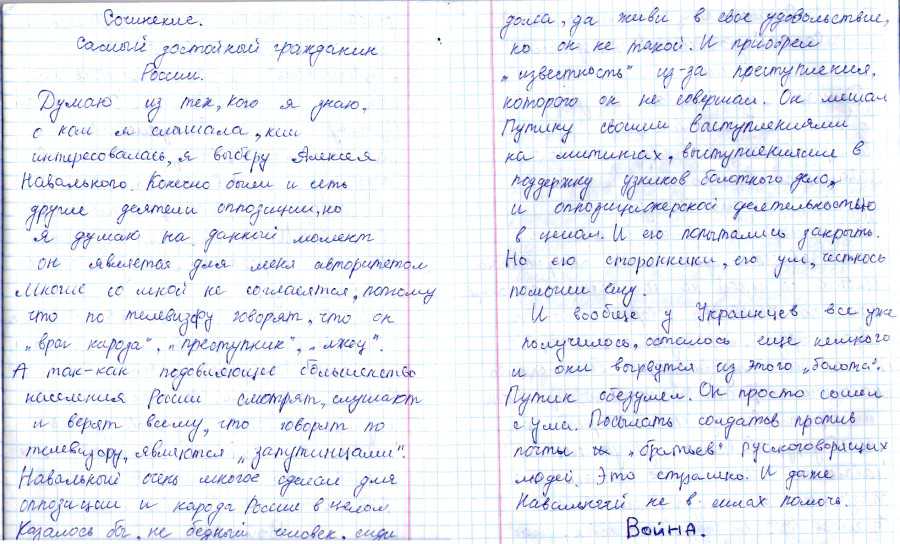 Сочинение.
Самый достойный гражданин
России.
Думаю из тех, кого я знаю,
о ком я слышала, кем
интересовалась, я выберу Алексея
Навального. Конесно были и есть
другие деятели оппозиции, но
я думаю на данный момент
он является для меня авторитетом
Многие со мной не согласятся, потому
что по телевизору говорят, что он
„враг народа", „преступник", „лжец".
А так-как подовляющее большенство
населения России смотрят, слушают
и верят всему, что говорят по
телевизору, являются „запутинцами".
Навальный осень многое сделал для
оппозиции и народа России в целом.
Казалось бы, не бедный человек, сиди
дома, да живи в свое удовольствие,
но он не такой. И приобрел
„известность" из-за преступления,
которого он не совершал. Он мешал
Путину своими выступлениями
на митингах, выступлениями в
поддержку узников болотного дела,
и оппозиционерской деятельностью
в целом. И его попытались закрыть.
Но его сторонники, его ум, честность
помогли ему.
И вообще у Украинцев все уже
получилось, осталось еще немного
и они вырвутся из этого „болота".
Путин обезумел. Он просто сошел
с ума. Посылать солдатов против
почти „братьев" русскоговорящих
людей. Это страшно. И даже
Навальный не в силах помочь.
Война.